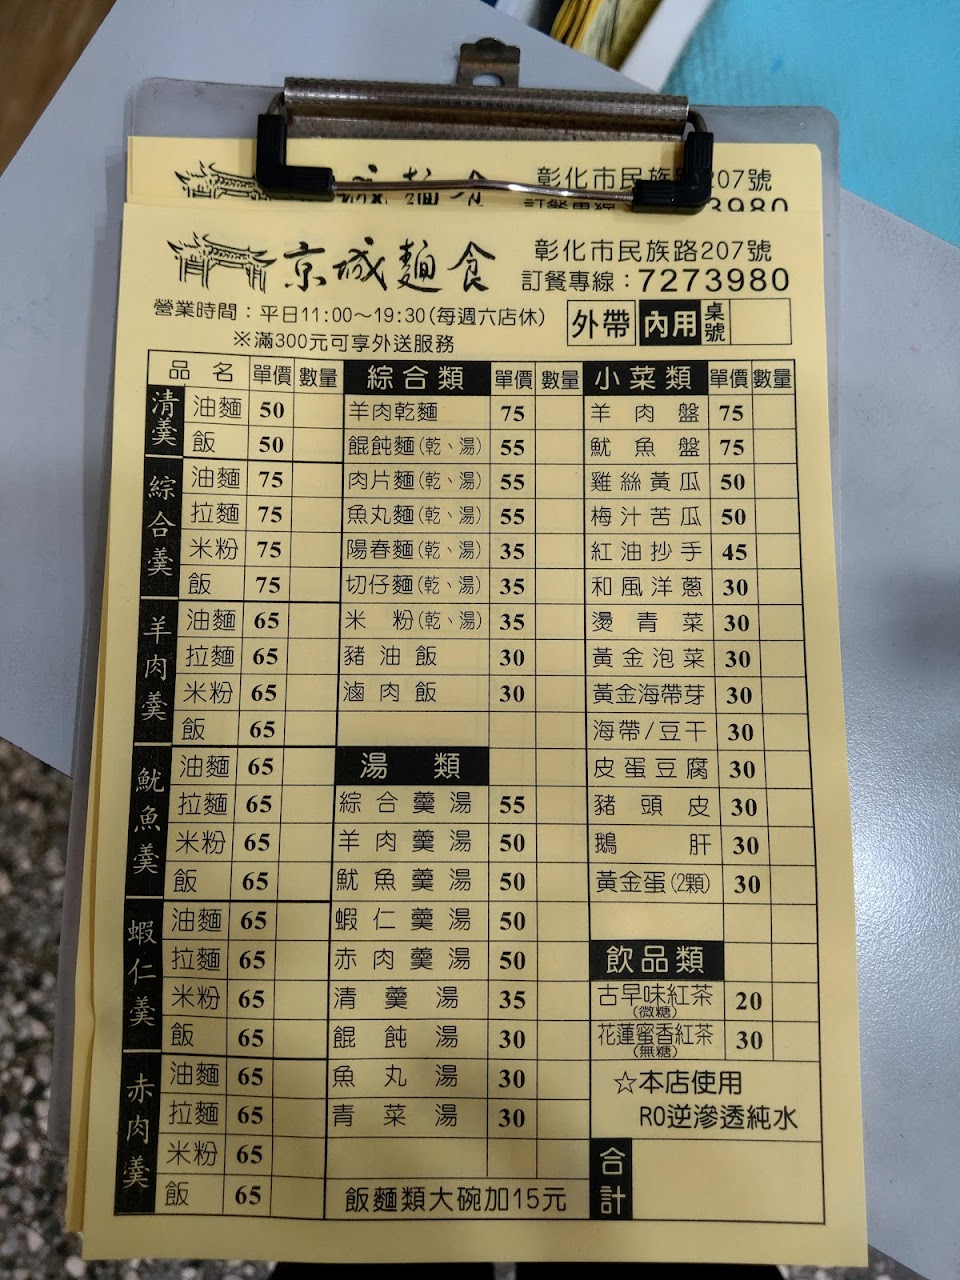 彰化市民族路207號
京城麵食
彰化市民族路207號
訂餐專線：7273980
營業時間：平日11:00～19:30(每週六店休)
※滿300元可享外送服務
外帶 內用 桌號
品名 單價 數量
清羹
油麵 50
飯 50
綜合羹
油麵 75
拉麵 75
米粉 75
飯 75
羊肉羹
油麵 65
拉麵 65
米粉 65
飯 65
魷魚羹
油麵 65
拉麵 65
米粉 65
飯 65
蝦仁羹
油麵 65
拉麵 65
米粉 65
飯 65
赤肉羹
油麵 65
拉麵 65
米粉 65
飯 65
綜合類 單價 數量
羊肉乾麵 75
餛飩麵(乾、湯) 55
肉片麵(乾、湯) 55
魚丸麵(乾、湯) 55
陽春麵(乾、湯) 35
切仔麵(乾、湯) 35
米粉(乾、湯) 35
豬油飯 30
滷肉飯 30
湯類
綜合羹湯 55
羊肉羹湯 50
魷魚羹湯 50
蝦仁羹湯 50
赤肉羹湯 50
清羹湯 35
餛飩湯 30
魚丸湯 30
青菜湯 30
飯麵類大碗加15元
小菜類 單價 數量
羊肉盤 75
魷魚盤 75
雞絲黃瓜 50
梅汁苦瓜 50
紅油抄手 45
和風洋蔥 30
燙青菜 30
黃金泡菜 30
黃金海帶芽 30
海帶/豆干 30
皮蛋豆腐 30
豬頭皮 30
鵝肝 30
黃金蛋(2顆) 30
飲品類
古早味紅茶(微糖) 20
花蓮蜜香紅茶(無糖) 30
☆本店使用
RO逆滲透純水
合計